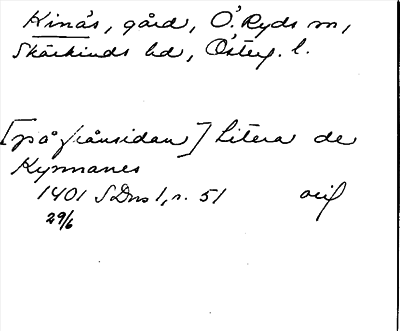 Kinås, gård, Ö. Ryds sn,
Skärkinds hd, Österg. l.
[på frånsidan] Litera de
Kynnanes
1401 SDns 1, s. 51 orig
29/6